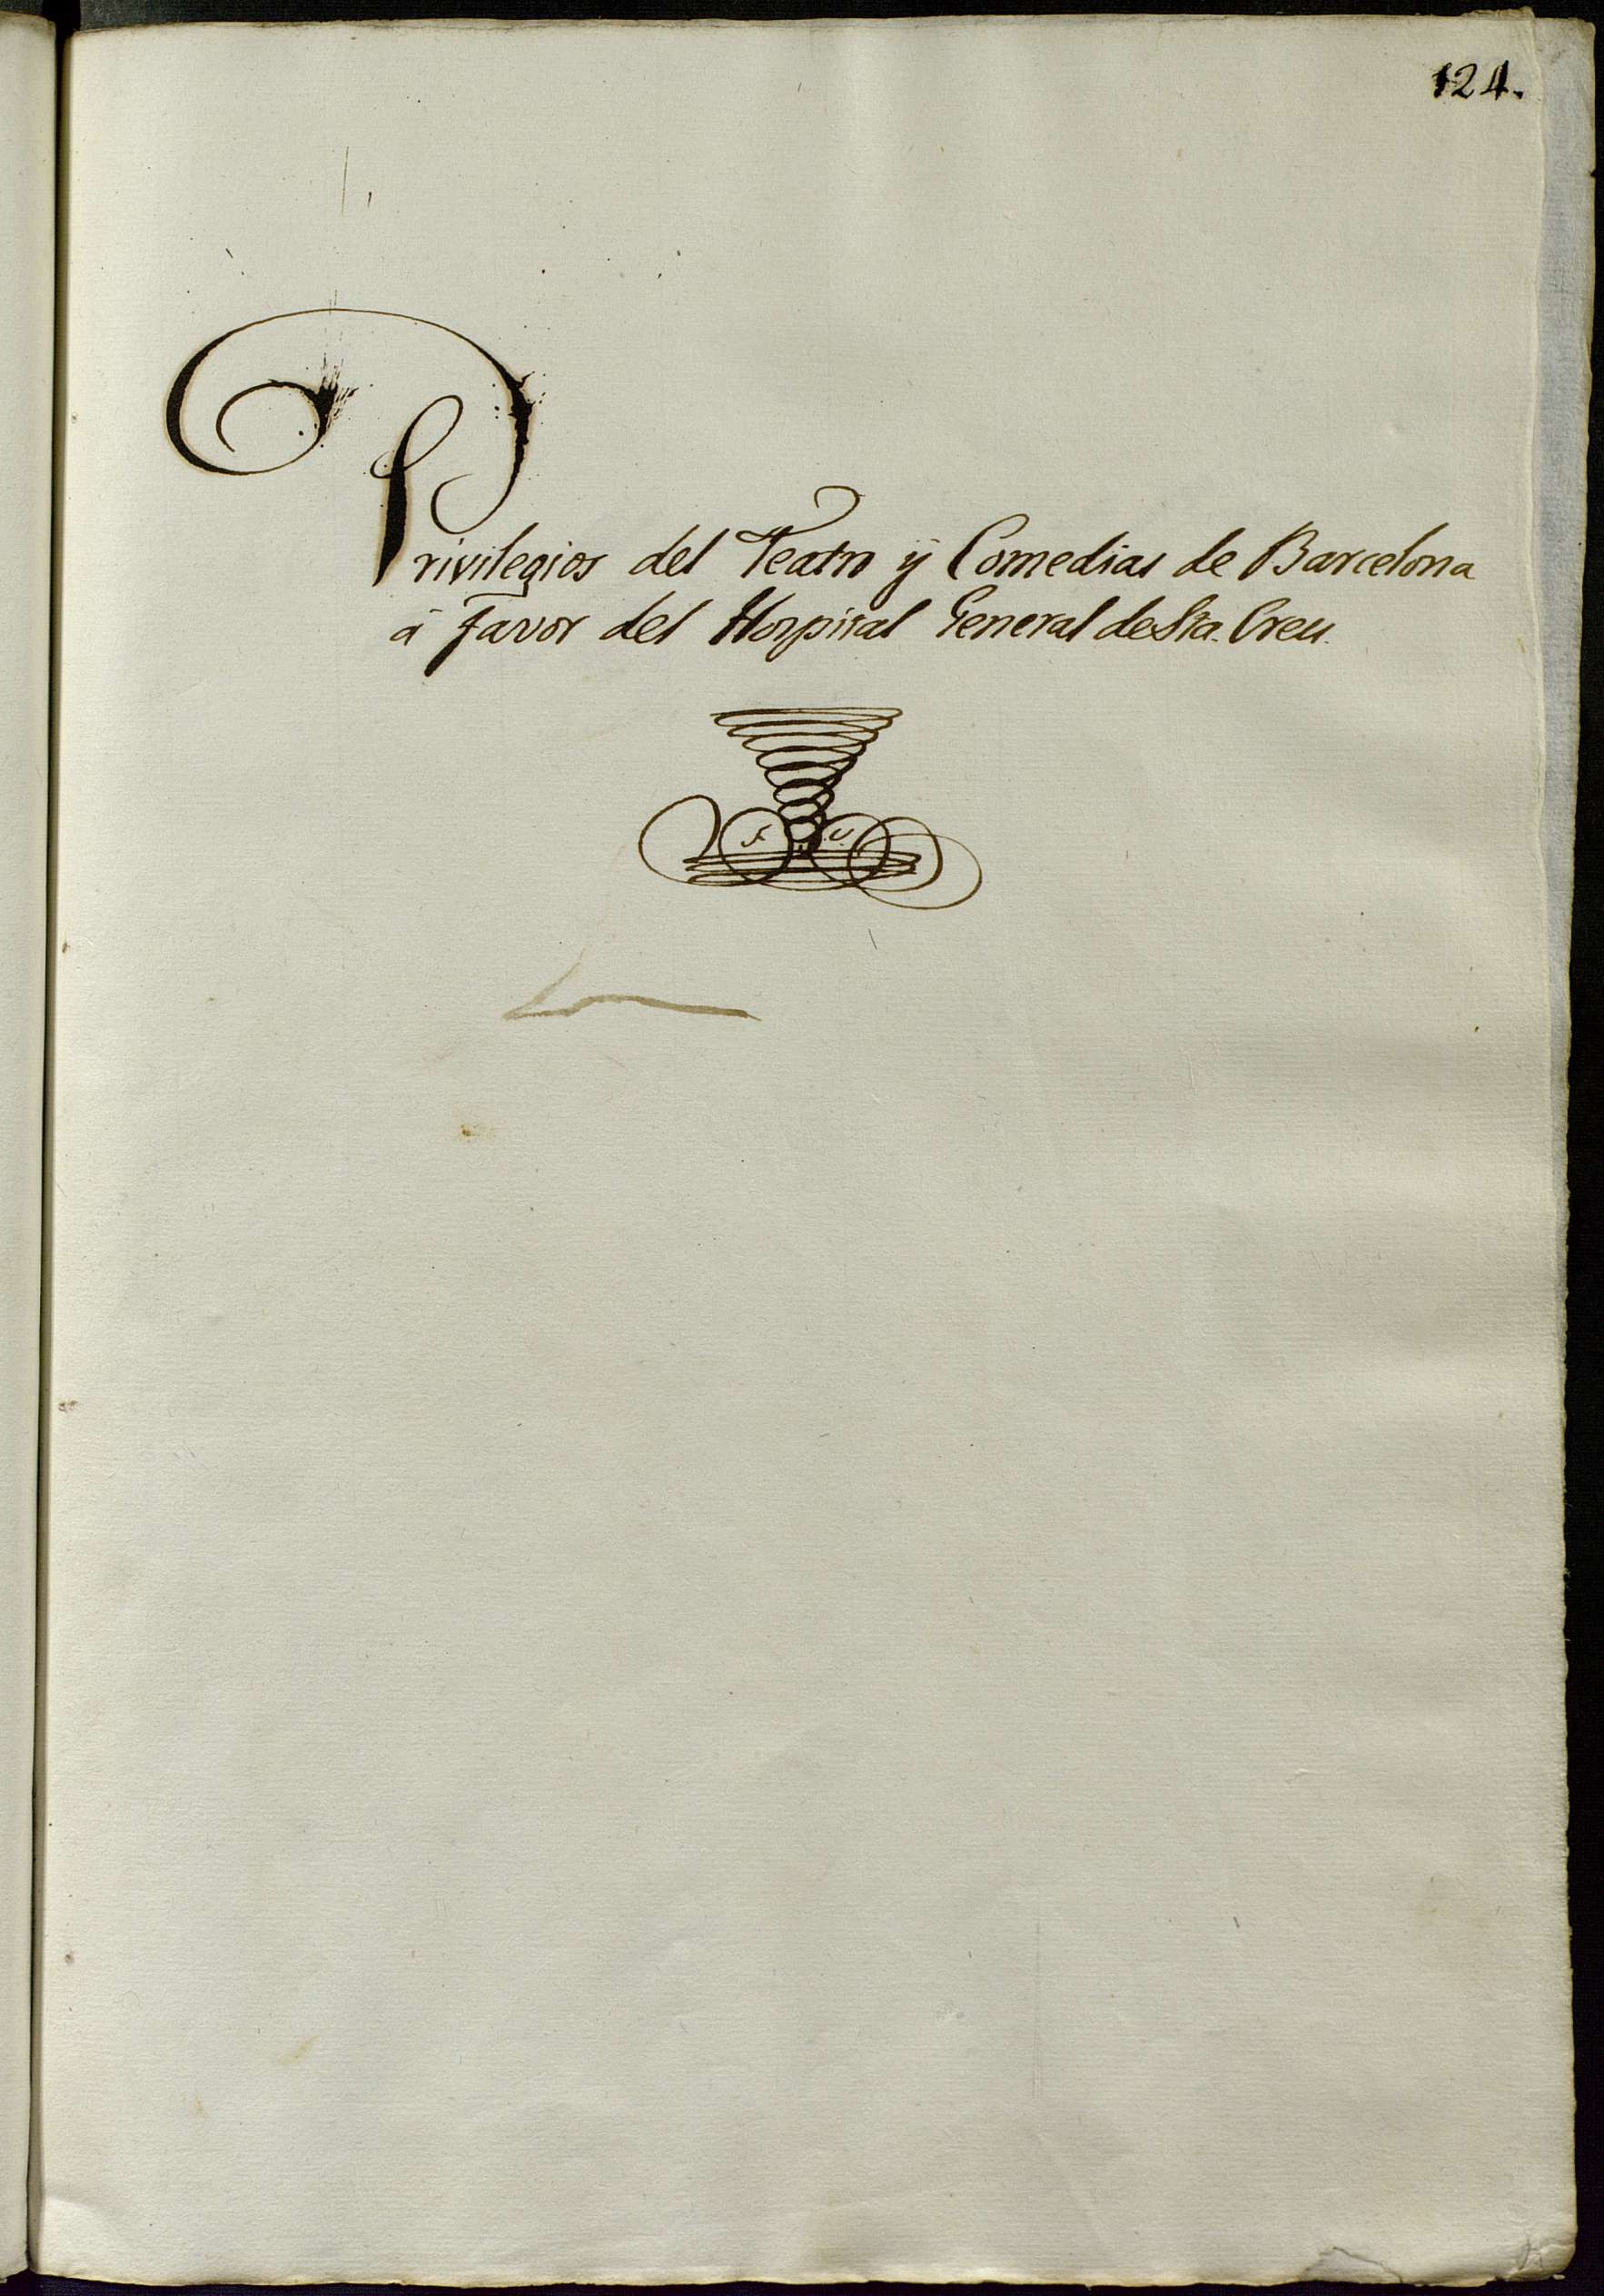 124.
Privilegios del Teatro ÿ Comedias de Barcelona
á favor del Hospital General de Sta. Creu.